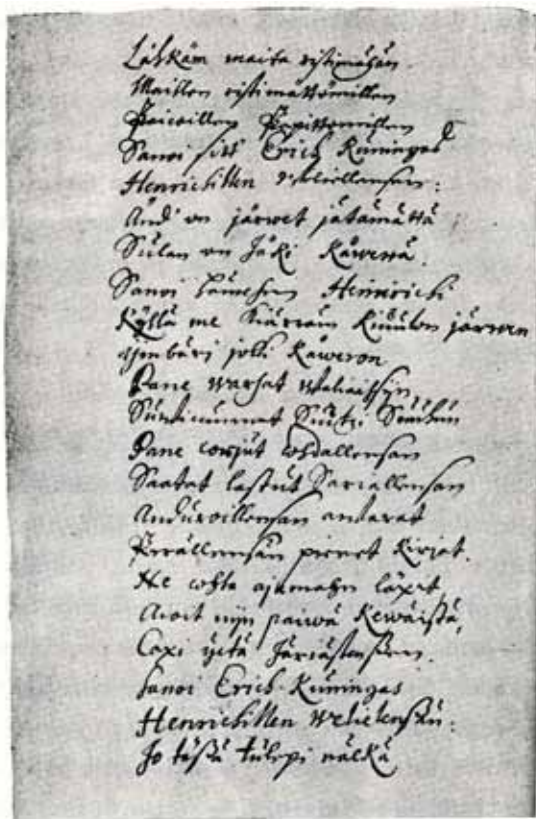 Läkkäm maita ristimähän
Maillen ristimättömillen
Paicoillen Papittomillen
Sanoi sitt Erich Kuningas
Henrichillen Weliellensän:
Änd' on järwet jätämättä
Sulan on Jäki Käwerä.
Sanoi Heinrichi
Kyllä me Kiärräm Kiuulon järwen
ymbäri joki Käweron.
Pane warhat waliaisijn
Pane corjut cohdallensan
Saatat lastut Sariallensan
Anduroillensan andarat
Perällensän pienet Kirjat.
He cohta ajamahn läxit
Aioit nijn paiwä Kewäistä,
Caxi yötä Järiästensän.
Sanoi Erich Kuningas
Henrichillen weliellensän:
Jo täßä tulepi nälkä